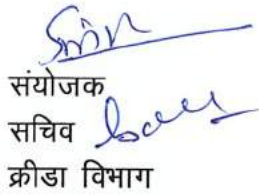 संयोजक
सचिव
क्रीडा विभाग